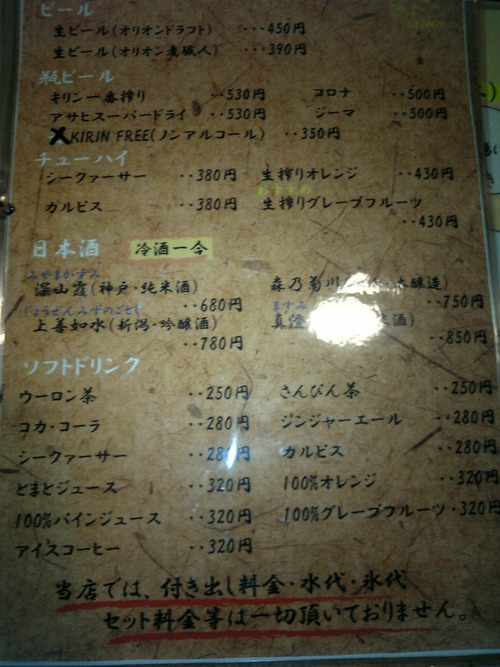 ビール
生ビール(オリオンドラフト) ‥450円
生ビール(オリオン麦職人) ‥390円
瓶ビール
キリン一番搾り ‥530円 コロナ ‥500円
アサヒスーパードライ ‥530円 ジーマ ‥500円
KIRIN FREE(ノンアルコール) ‥350円
チューハイ
シークァーサー ‥380円 生搾りオレンジ ‥430円
おすすめ
カルピス ‥380円 生搾りグレープフルーツ
‥430円
日本酒 冷酒一合
みやまがすみ
深山霞(神戸・純米酒) 森乃菊川 本醸造)
‥680円 ‥750円
じょうぜんみずのごとし ますみ
上善如水(新潟・吟醸酒) 真澄 酒)
‥780円 ‥850円
ソフトドリンク
ウーロン茶 ‥250円 さんぴん茶 ‥250円
コカ・コーラ ‥280円 ジンジャーエール ‥280円
シークァーサー ‥280円 カルピス ‥280円
とまとジュース ‥320円 100%オレンジ ‥320円
100%パインジュース ‥320円 100%グレープフルーツ‥320円
アイスコーヒー ‥320円
当店では、付き出し料金・水代・氷代
セット料金等は一切頂いておりません。